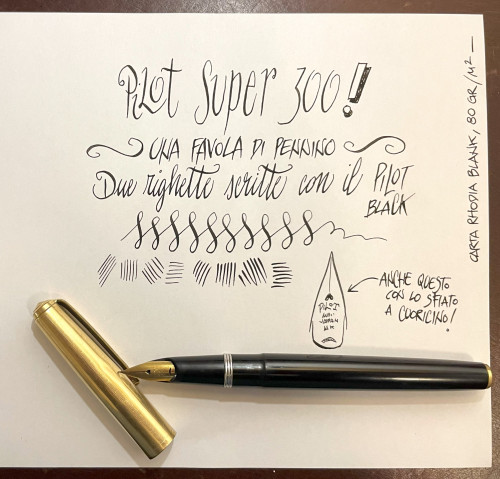 Pilot Super 300!
UNA FAVOLA DI PENNINO
Due righette scritte con il PILOT
BLACK
ANCHE QUESTO
CON LO SFIATO
A CUORICINO!
PILOT
CARTA RHODIA BLANK, 80 GR/M²